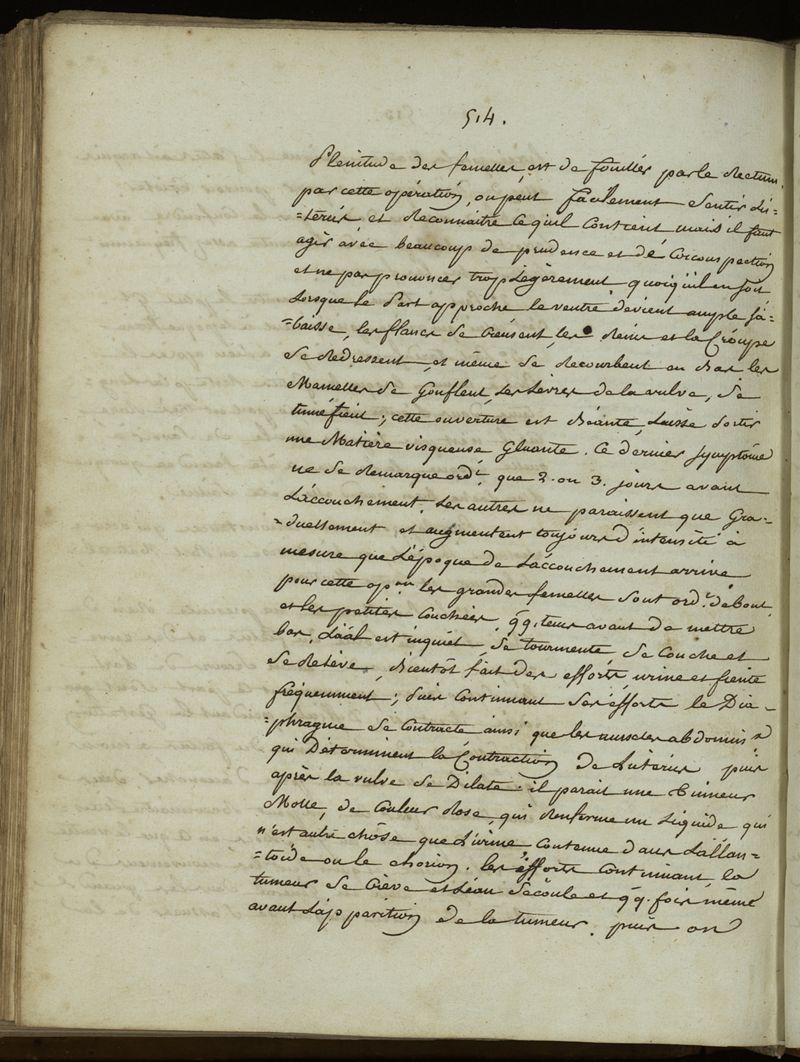 514.
Plenitude des femelles est de fouiller par le Rectum.
par cette opération, on peut facilement sentir L'u-
-terus et Reconnaitre ce quil Contient mais il faut
agir avec beaucoup de prudence et de Circonspection
et ne pas prononcer trop Légèrement quoiqu'il en soit
Lorsque le Part approche le ventre devient ample s'a-
-baisse, les flancs se Creusent, les Reins et la Croupe
se Redressent et même se Recourbent en Bas les
Mamelles se Gonflent, Les Levres de la vulve, se
tuméfient; cette ouverture est Béante, Laisse Sortir
une Matière visqueuse Gluante. Ce dernier Symptôme
ne se Remarque ord.t que 2. ou 3. jours avant
L'accouchement, Les autres ne paraissent que Gra-
-duellement et augmentent toujours d'intensité à
mesure que L'époque de L'accouchement arrive
pour cette op.on les grandes femelles sont ord.t debout,
et les petites Couchées. qq. tems avant de mettre
bas, L'a.al est inquiet, se tourmente, se Couche et
se Relève, Bientôt fait des efforts, urine et fiente
fréquemment; puis Continuant Ses efforts le Dia-
-phragme se Contracte ainsi que les muscles abdomin.x
qui Déterminent la Contraction de L'uterus puis
après la vulve se Dilate. il parait une tumeur
Molle, de Couleur Rose, qui Renferme un Liquide qui
n'est autre chose que L'urine Contenue dans L'allan-
-toïde ou le chorion. les efforts Continuant, la
tumeur se Crève et L'eau S'écoule et qq. fois même
avant L'apparition de la tumeur. puis on